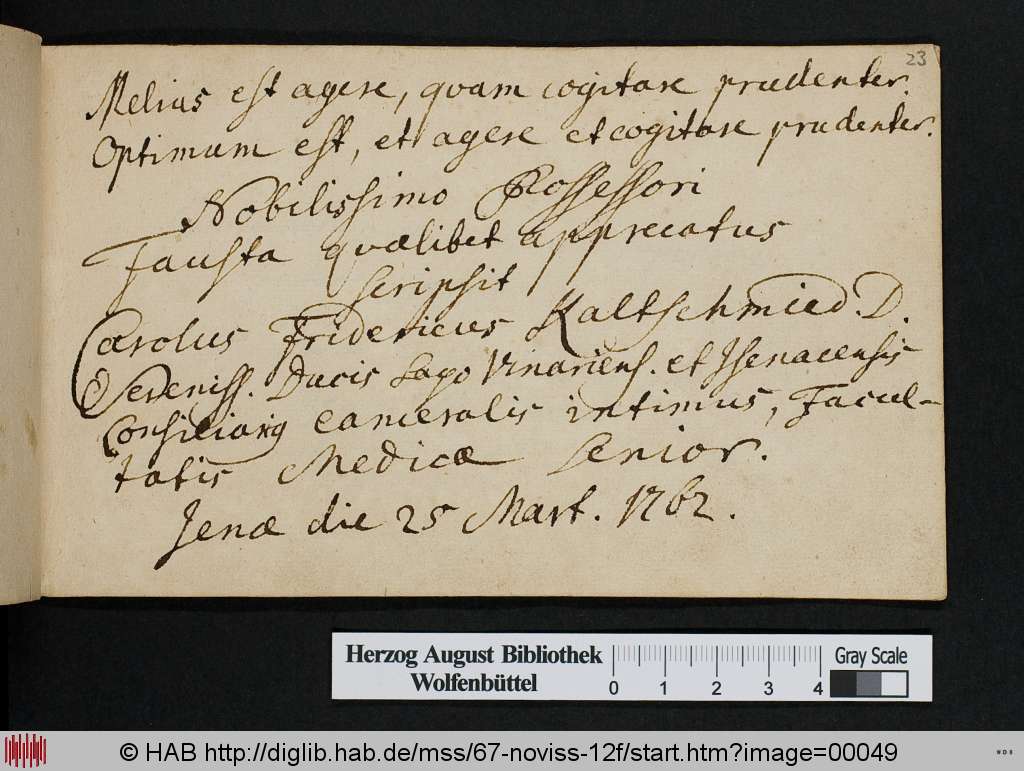 23
Melius est agere, quam cogitare prudenter.
Optimum est, et agere et cogitare prudenter.
Nobilissimo Possessori
Fausta quælibet apprecatus
scripsit
Carolus Fridericus Kaltschmied. D.
Sereniss. Ducis Saxo Vinariens. et Isenacensis
Consiliarius cameralis intimus, Facul-
tatis Medicæ Senior.
Jenæ die 25 Mart. 1762.
Herzog August Bibliothek
Wolfenbüttel
0 1 2 3 4
Gray Scale
© HAB http://diglib.hab.de/mss/67-noviss-12f/start.htm?image=00049
WDB